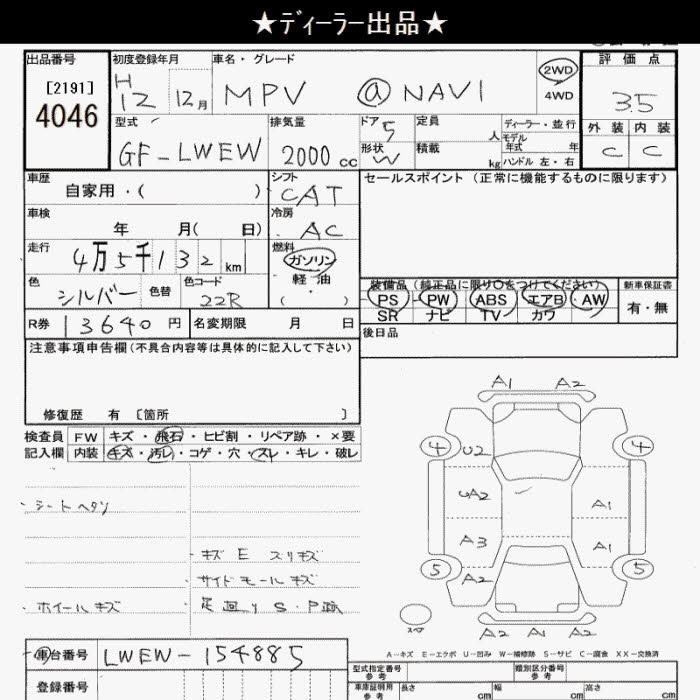 ★ディーラー出品★
出品番号 初度登録年月 車名・グレード 2WD 評価点
[2191] H 12 12月 MPV @NAVI 4WD 3.5
4046 型式 排気量 ドア 5 定員 人 ディーラー・並行 外装 内装
GF-LWEW 2000cc 形状 W 積載 kg モデル年式 年 C C
ハンドル 左・右
車歴 シフト セールスポイント (正常に機能するものに限ります)
自家用・( ) CAT
車検 冷房
年 月( 日) AC
走行 燃料
4万5千132km ガソリン
色 色替 色コード 軽油
シルバー 22R ( ・ )
装備品 (純正品に限り○をつけてください) 新車保証書
PS PW ABS エアB AW 有・無
SR ナビ TV カワ
R券 13640円 名変期限 月 日 後日品
注意事項申告欄(不具合内容等は具体的に記入して下さい)
修復歴 有 〔箇所 〕
検査員 FW キズ・飛石・ヒビ割・リペア跡・×要
記入欄 内装 キズ・汚レ・コゲ・穴・スレ・キレ・破レ
A1 A2
4 U2 4
UA2 A1
A3 A1
5 A2 5
A2 A1 A2
・シートヘタリ
・キズ E スリキズ
・サイドモールキズ
・ホイールキズ ・足廻り S・P跡
A-キズ E-エクボ U-凹み W-補修跡 S-サビ C-腐食 XX-交換済
車台番号 LWEW-154885
登録番号
型式指定番号 参考 類別区分番号 参考
車庫証明用 参考 長さ cm 幅 cm 高さ cm